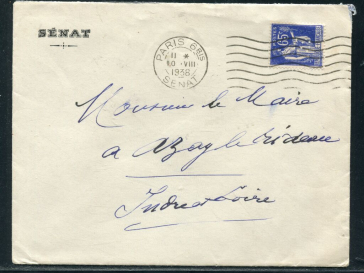 SÉNAT
PARIS 6 BIS
11 *
10 - VIII
1938
SENAT
65c
Monsieur le Maire
a Azay le Rideau
Indre et Loire